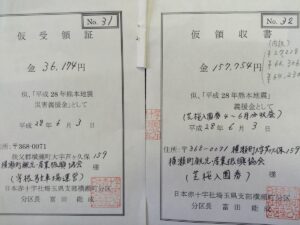 No. 31
仮受領証
金 36,174円
但、「平成28年熊本地震
災害義援金として
平成 28年 6月 3日
住所:〒368-0071
秩父郡横瀬町大字芦ヶ久保159
横瀬町観光・産業振興協会 様
日本赤十字社埼玉県支部横瀬町分区
分区長 富田能成
No. 32
仮領収書
(内訳)
金 157,754円
但、「平成28年熊本地震」
義援金として
平成 28年 6月 3日
住所:〒368-0071 横瀬町大字芦ヶ久保159
横瀬町観光・産業振興協会
(芝桜入園券) 様
日本赤十字社埼玉県支部横瀬町分区
分区長 富田能成